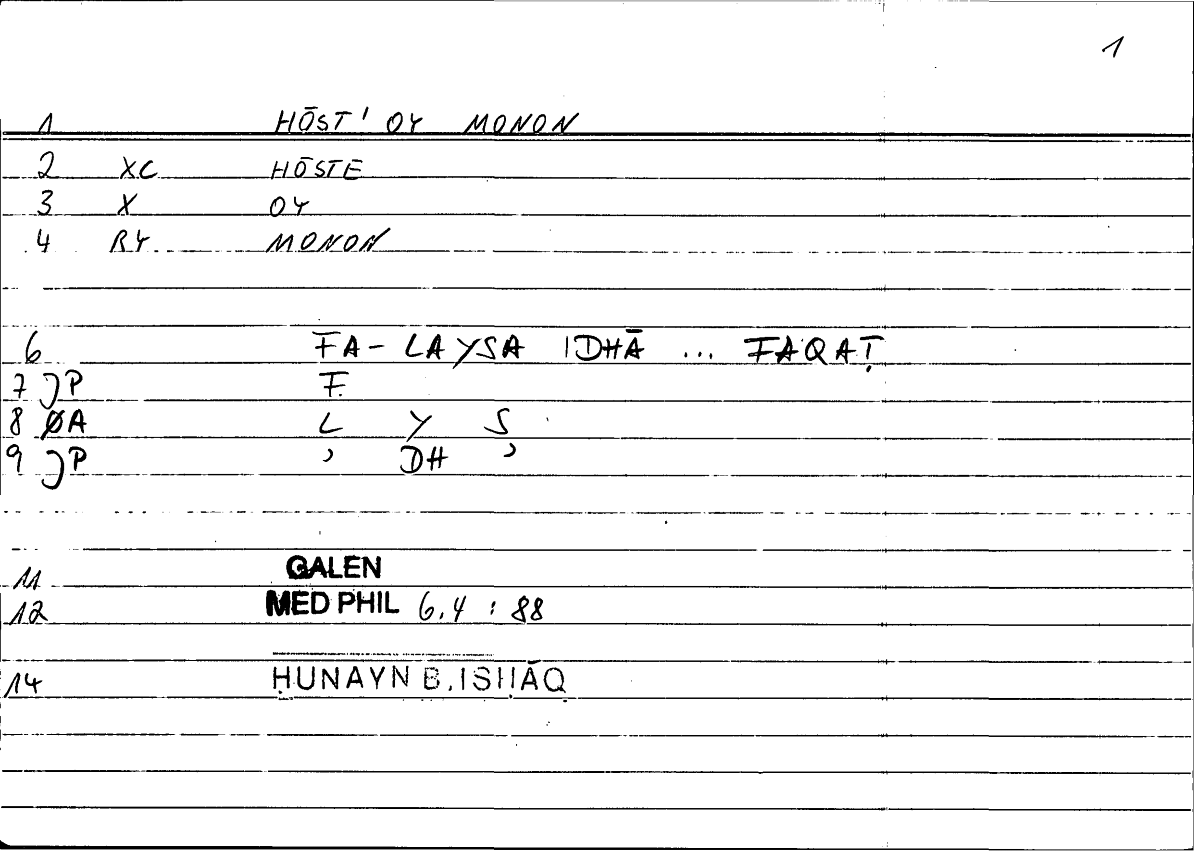 1
1 HŌST' OY MONON
2 XC HŌSTE
3 X OY
4 RY MONON
6 FA-LAYSA IDHĀ ... FAQAṬ
7 JP F
8 ØA L Y S
9 JP ʾ DH ʾ
11 GALEN
12 MED PHIL 6.4 : 88
14 ḤUNAYN B. ISḤĀQ